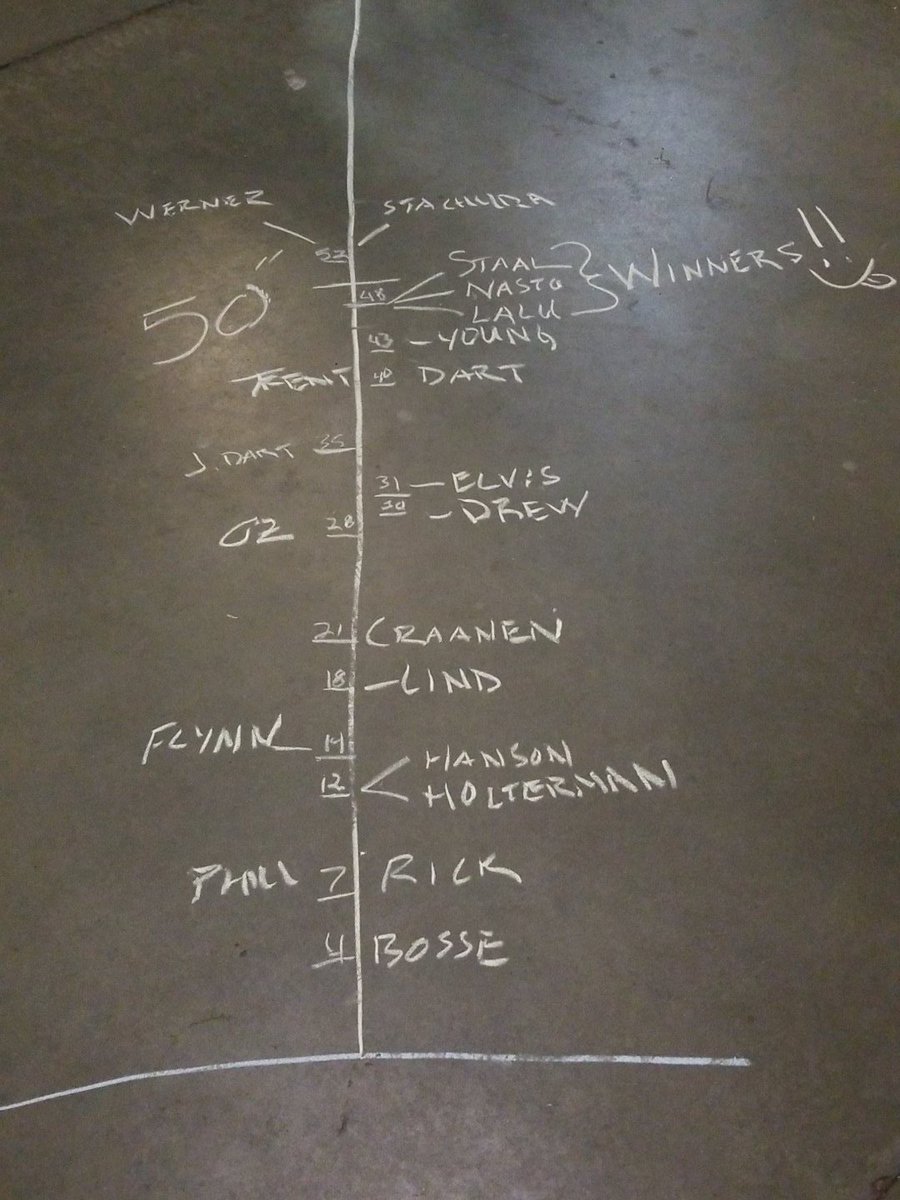 WERNER STACHURA
52
50"
48 STAAL
NASTO
LALU
WINNERS!!
43 - YOUNG
TRENT 40 DART
J. DART 35
31 - ELVIS
30 - DREW
OZ 28
21 CRAANEN
18 - LIND
FLYNN 14
12 HANSON
HOLTERMAN
PHILL 7 RICK
4 BOSSE